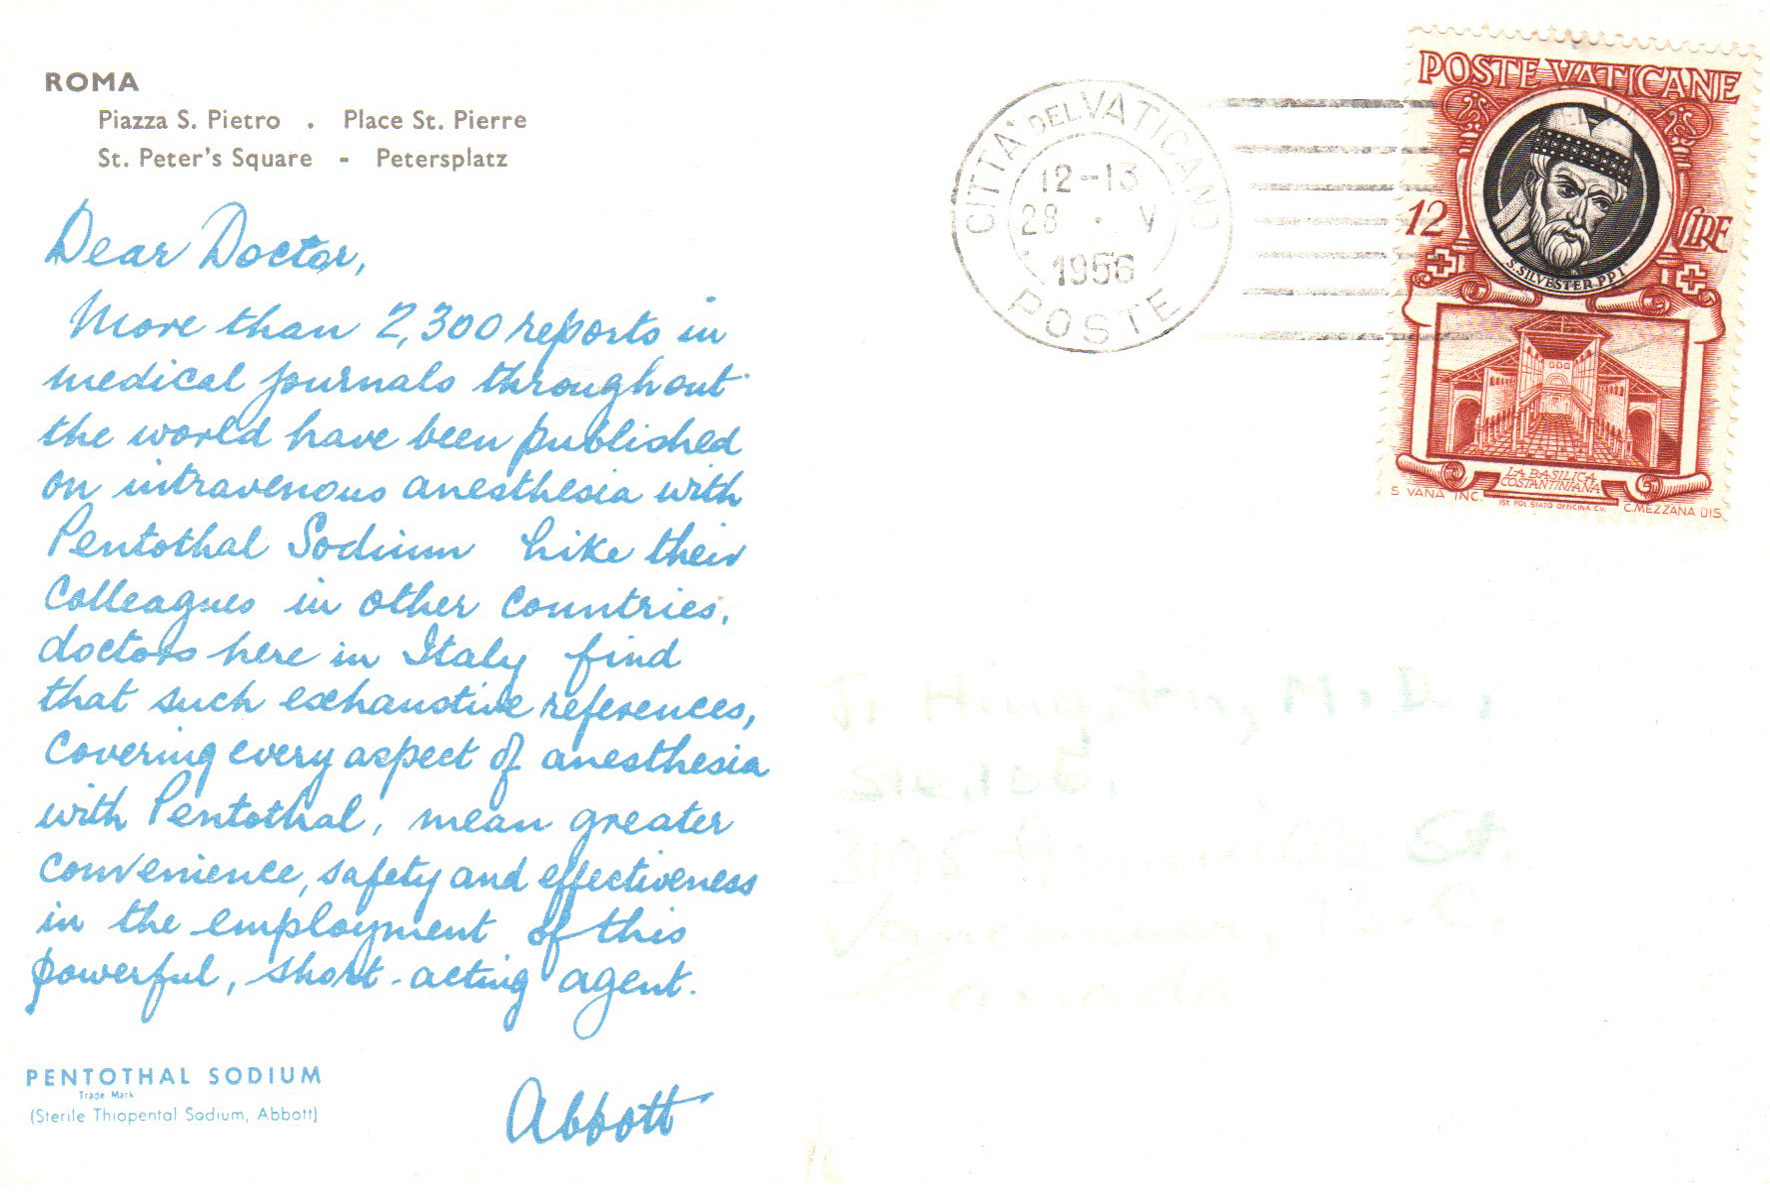 ROMA
Piazza S. Pietro . Place St. Pierre
St. Peter's Square - Petersplatz
Dear Doctor,
More than 2,300 reports in
medical journals throughout
the world have been published
on intravenous anesthesia with
Pentothal Sodium Like their
Colleagues in other Countries,
doctors here in Italy find
that such exhaustive references,
Covering every aspect of anesthesia
with Pentothal, mean greater
convenience, safety and effectiveness
in the employment of this
powerful, short-acting agent.
Abbott
PENTOTHAL SODIUM
Trade Mark
(Sterile Thiopental Sodium, Abbott)
CITTA' DEL VATICANO
12-13
28 . V
1956
POSTE
POSTE VATICANE
12 LIRE
S. SILVESTER. P.P. I
LA BASILICA
COSTANTINIANA
S. VANA INC.
IST. POL. STATO OFFICINA C.V.
C. MEZZANA DIS.
J. Hingston, M.D.,
Ste. 105,
St.
Vancouver, B.C.
Canada